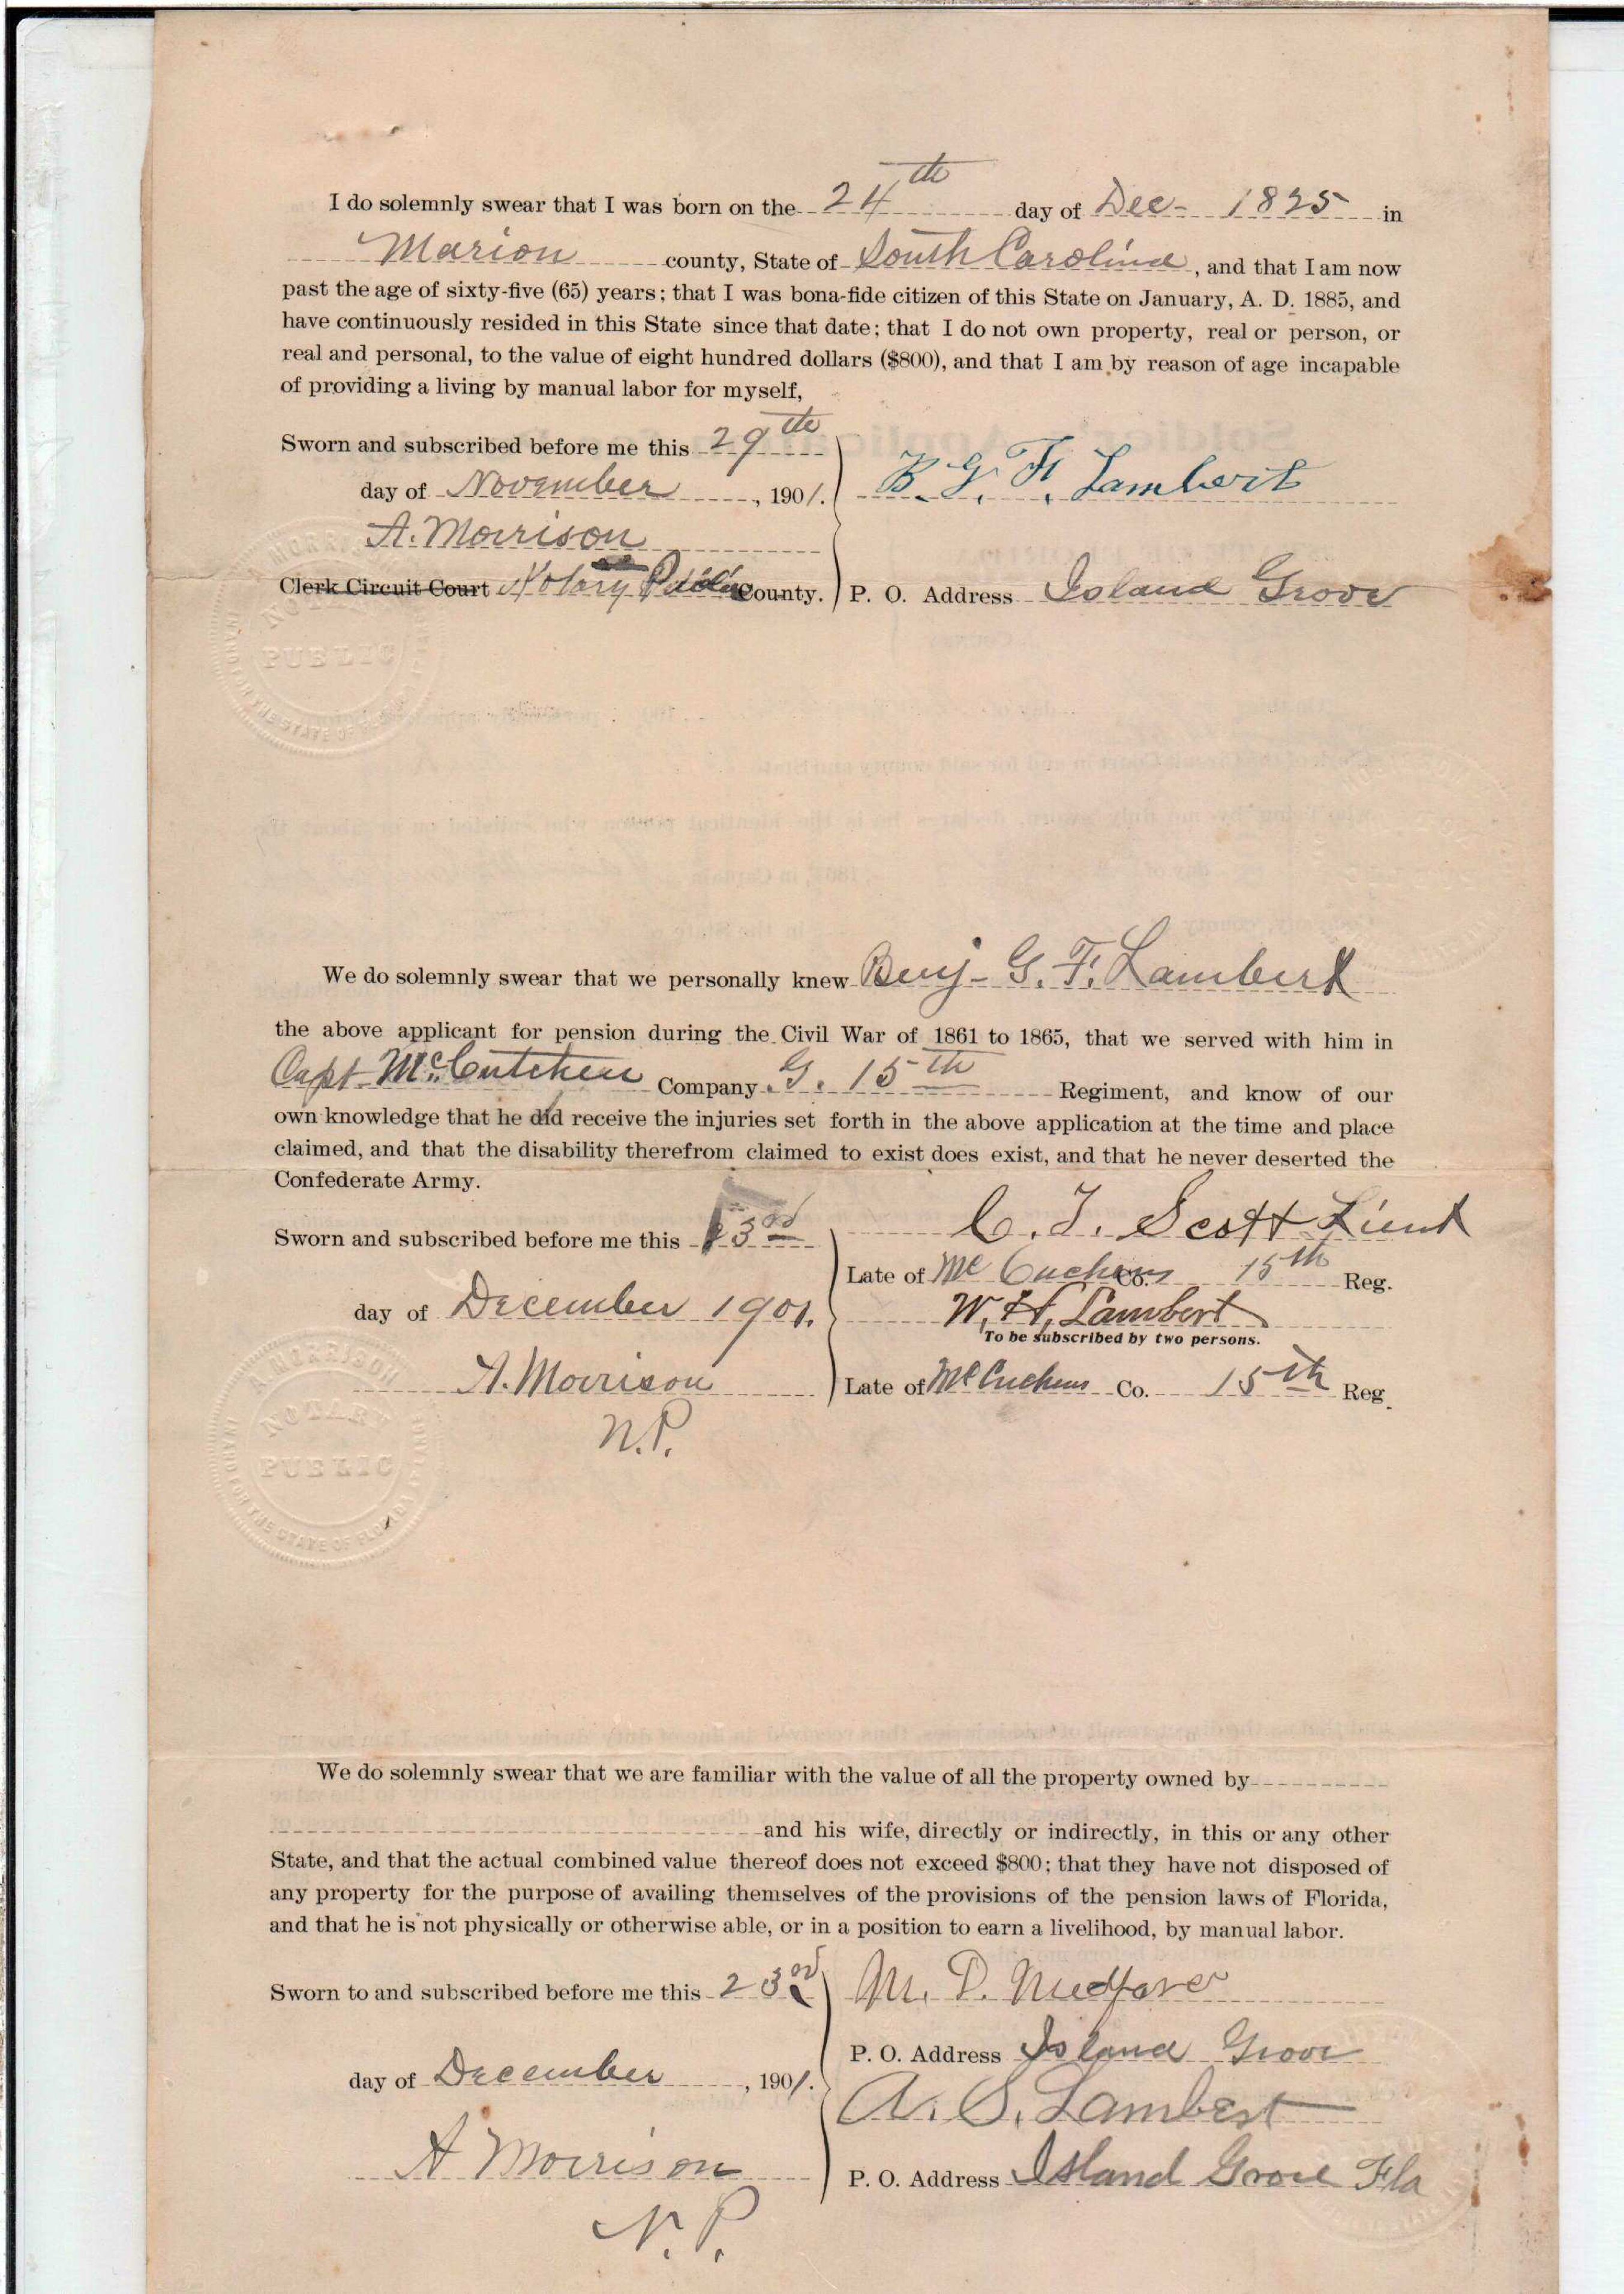 I do solemnly swear that I was born on the 24th day of Dec- 1825 in
Marion county, State of South Carolina, and that I am now
past the age of sixty-five (65) years; that I was bona-fide citizen of this State on January, A. D. 1885, and
have continuously resided in this State since that date; that I do not own property, real or person, or
real and personal, to the value of eight hundred dollars ($800), and that I am by reason of age incapable
of providing a living by manual labor for myself,
Sworn and subscribed before me this 29th
day of November, 1901. B. G. F. Lambert
A. Morrison
Clerk Circuit Court Notary Public County. P. O. Address Island Grove
NOTARY
PUBLIC
We do solemnly swear that we personally knew Benj- G. F. Lambert
the above applicant for pension during the Civil War of 1861 to 1865, that we served with him in
Capt McCutchen Company G. 15th Regiment, and know of our
own knowledge that he did receive the injuries set forth in the above application at the time and place
claimed, and that the disability therefrom claimed to exist does exist, and that he never deserted the
Confederate Army.
Sworn and subscribed before me this 3rd C. T. Scott Lieut
Late of Mc Cuchens Co. 15th Reg.
day of December 1901. W. H. Lambert
To be subscribed by two persons.
A. Morrison Late of McCuchens Co. 15th Reg.
N.P.
A MORRISON
NOTARY
PUBLIC
FOR THE STATE OF FLORIDA
We do solemnly swear that we are familiar with the value of all the property owned by
and his wife, directly or indirectly, in this or any other
State, and that the actual combined value thereof does not exceed $800; that they have not disposed of
any property for the purpose of availing themselves of the provisions of the pension laws of Florida,
and that he is not physically or otherwise able, or in a position to earn a livelihood, by manual labor.
Sworn to and subscribed before me this 23rd M. D.
P. O. Address Island Grove
day of December, 1901.
A. S. Lambert
A Morrison P. O. Address Island Grove Fla
N. P.